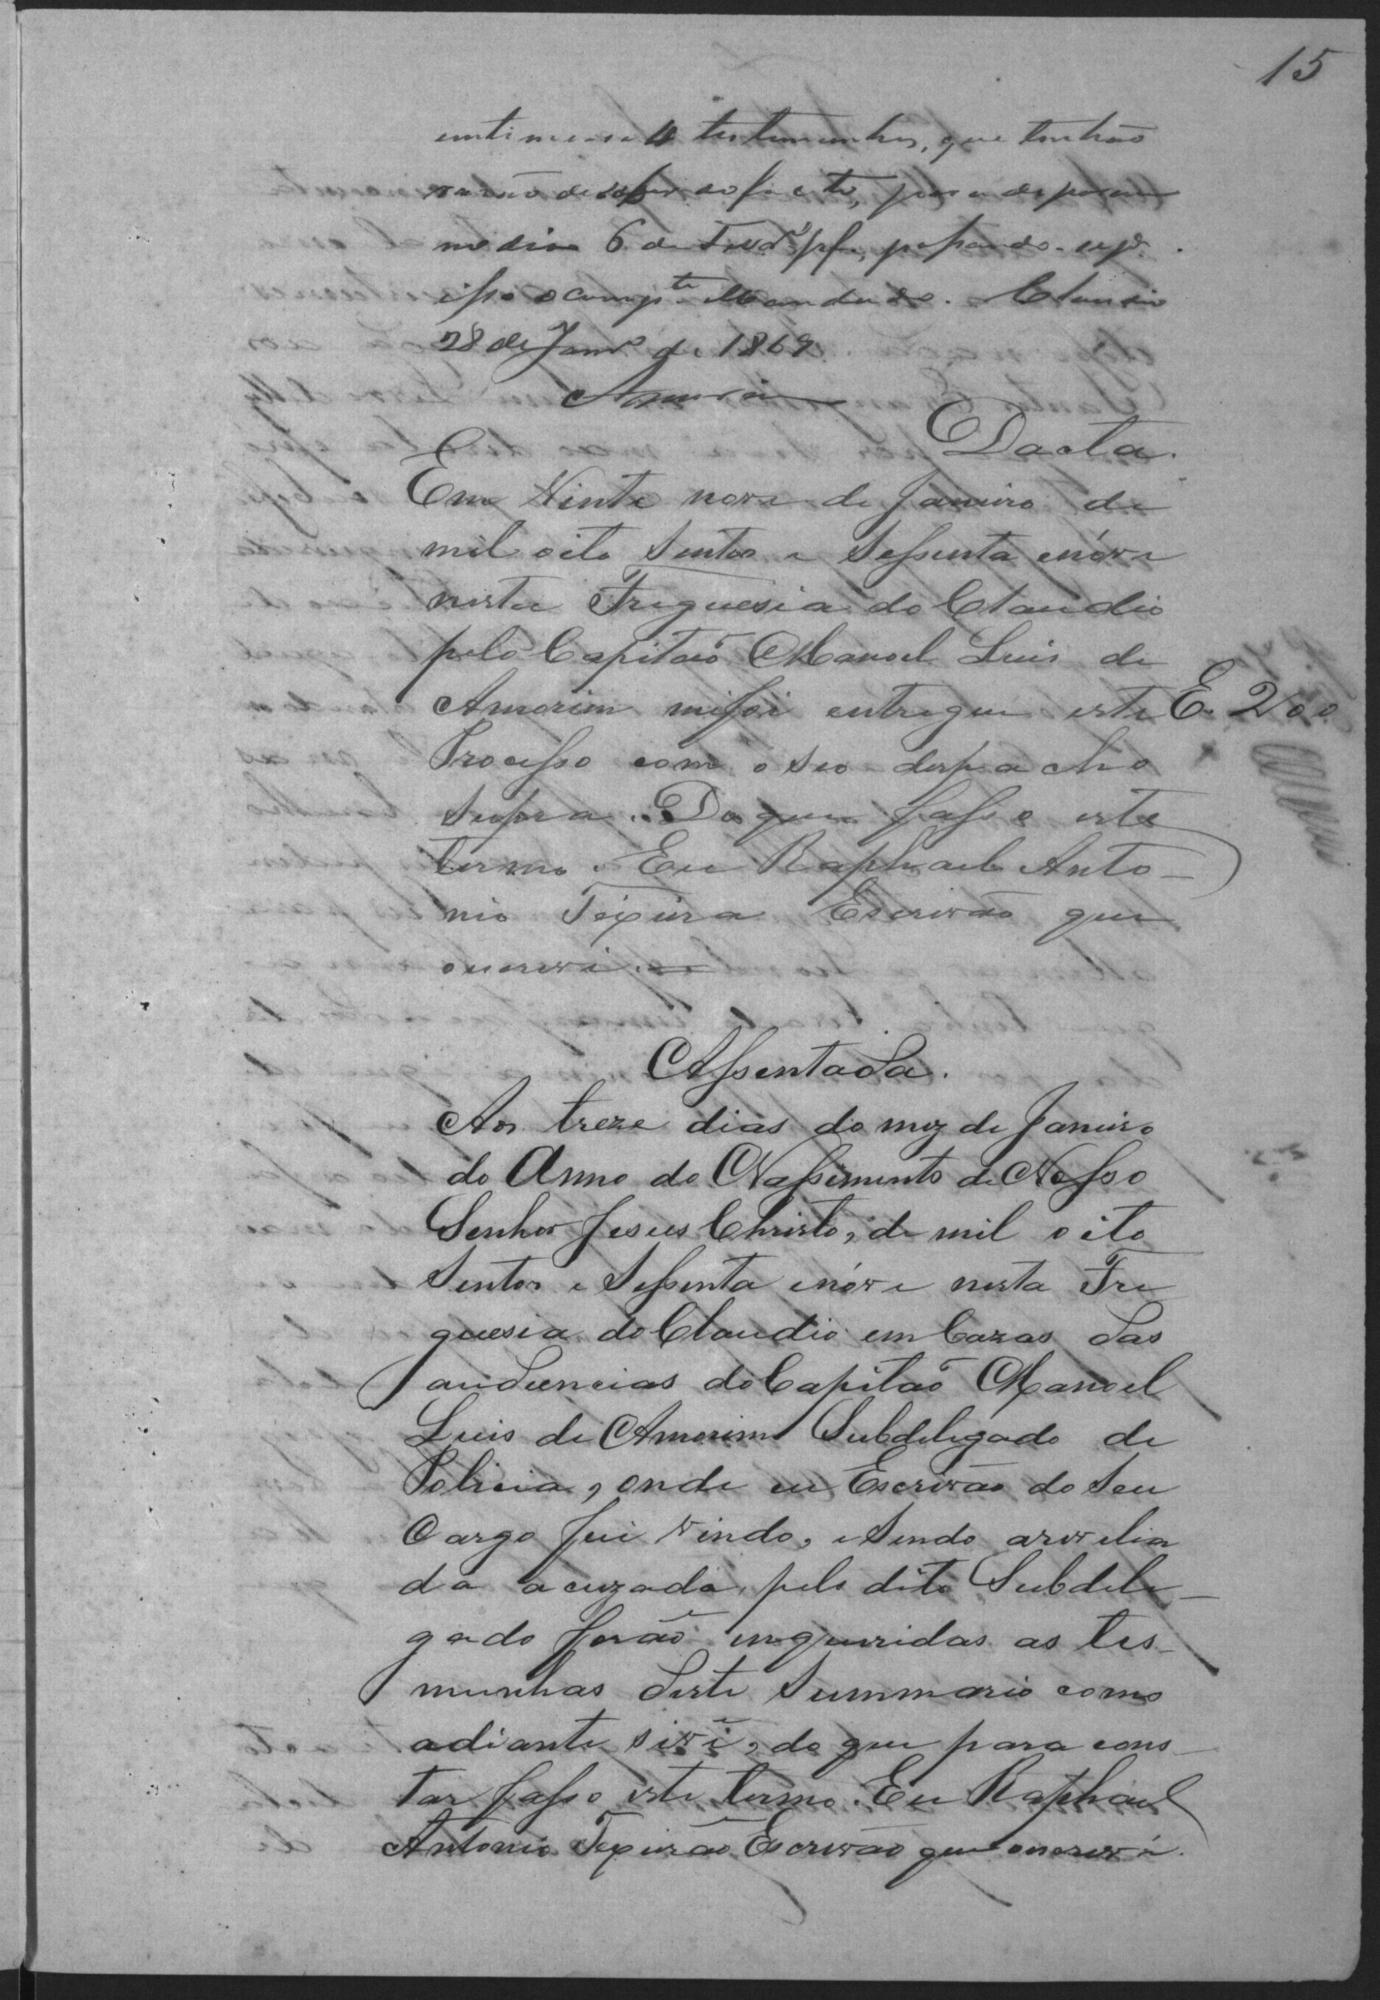 15
testemunhas, que tenhão
rasão de saber do facto, para deporem
no dia 6 de Fevr.º p.f., passando-se p.ª
isso o comp.te Mandado. Claudio
28 de Janr.º de 1869
Amorim
Dacta.
Em Vinte nove de Janeiro de
mil oito Sentos e Sessenta enóve
nesta Freguesia do Claudio
pelo Capitão Manoel Luis de
Amorim mifoi entregue este
E. 200
Processo com o seo despacho
supra. Do que fasso este
termo. Eu Raphael Anto-
nio Texeira Escrivão que
oescrevi.
Assentada.
Aos treze dias do mez de Janeiro
do Anno do Nassimento de Nosso
Senhor Jesus Christo, de mil oito
Sentos e Sessenta enóve nesta Fre
guesia do Claudio em Cazas das
audiencias do Capitão Manoel
Luis de Amorim Subdelegado de
Policia, onde eu Escrivão do Seu
Cargo fui vindo, e sendo
da acuzada, pelo dito Subdele-
gado forão inqueridas as tes-
munhas deste Summario como
adiante se vê, do que para cons-
tar fasso este termo. Eu Raphael
Antonio Texeira Escrivão que oescrevi.